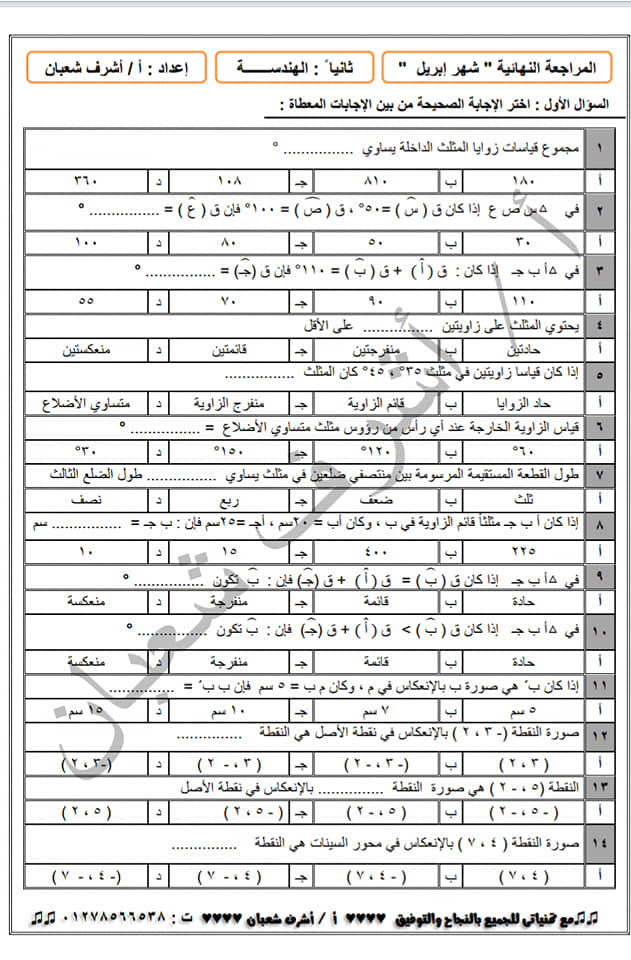 المراجعة النهائية " شهر إبريل "
ثانيا ً : الهندســـــة
إعداد : أ / أشرف شعبان
السؤال الأول : اختر الإجابة الصحيحة من بين الإجابات المعطاة :
١ مجموع قياسات زوايا المثلث الداخلة يساوي ................ °
أ ١٨٠ ب ٨١٠ جـ ١٠٨ د ٣٦٠
٢ في △ س ص ع إذا كان ق ( س ) =٥٠° ، ق ( ص ) = ١٠٠° فإن ق ( ع ) = ................ °
أ ٣٠ ب ٥٠ جـ ٨٠ د ١٠٠
٣ في △أ ب جـ إذا كان : ق ( أ ) + ق ( ب ) = ١١٠° فإن ق (جـ) = ................ °
أ ١١٠ ب ٩٠ جـ ٧٠ د ٥٥
٤ يحتوي المثلث على زاويتين ................ على الأقل
أ حادتين ب منفرجتين جـ قائمتين د منعكستين
٥ إذا كان قياسا زاويتين في مثلث ٣٥° ، ٤٥° كان المثلث ................
أ حاد الزوايا ب قائم الزاوية جـ منفرج الزاوية د متساوي الأضلاع
٦ قياس الزاوية الخارجة عند أي رأس من رؤوس مثلث متساوي الأضلاع = ................ °
أ ٦٠° ب ١٢٠° جـ ١٥٠° د ٣٠°
٧ طول القطعة المستقيمة المرسومة بين منتصفي ضلعين في مثلث يساوي ................ طول الضلع الثالث
أ ثلث ب ضعف جـ ربع د نصف
٨ إذا كان أ ب جـ مثلثاً قائم الزاوية في ب ، وكان أب = ٢٠سم ، أجـ =٢٥سم فإن : ب جـ = ................ سم
أ ٢٢٥ ب ٤٠٠ جـ ١٥ د ١٠
٩ في △أ ب جـ إذا كان ق ( ب ) = ق ( أ ) + ق (جـ) فإن : ب تكون ................ °
أ حادة ب قائمة جـ منفرجة د منعكسة
١٠ في △أ ب جـ إذا كان ق ( ب ) > ق ( أ ) + ق (جـ) فإن : ب تكون ................ °
أ حادة ب قائمة جـ منفرجة د منعكسة
١١ إذا كان بَ هي صورة ب بالإنعكاس في م ، وكان م ب = ٥ سم فإن ب بَ = ................
أ ٥ سم ب ٧ سم جـ ١٠ سم د ١٥ سم
١٢ صورة النقطة (- ٣ ، ٢ ) بالإنعكاس في نقطة الأصل هي النقطة ................
أ ( ٣ ، ٢ ) ب (- ٣ ، - ٢ ) جـ ( ٣ ، - ٢ ) د (-٣ ، ٢ )
١٣ النقطة (٥ ، - ٢ ) هي صورة النقطة ................ بالإنعكاس في نقطة الأصل
أ ( - ٥ ، - ٢ ) ب ( ٥ ، - ٢ ) جـ ( - ٥ ، ٢ ) د ( ٥ ، ٢ )
١٤ صورة النقطة ( ٤ ، ٧ ) بالإنعكاس في محور السينات هي النقطة ................
أ ( ٤ ، ٧ ) ب ( - ٤ ، ٧ ) جـ ( ٤ ، - ٧ ) د (- ٤ ، - ٧ )
♫♫مع تمنياتي للجميع بالنجاح والتوفيق ♥♥♥♥ أ / أشرف شعبان ♥♥♥♥ ت : ٠١٢٧٨٥٦٦٥٣٨ ♫♫
أ / أشرف شعبان